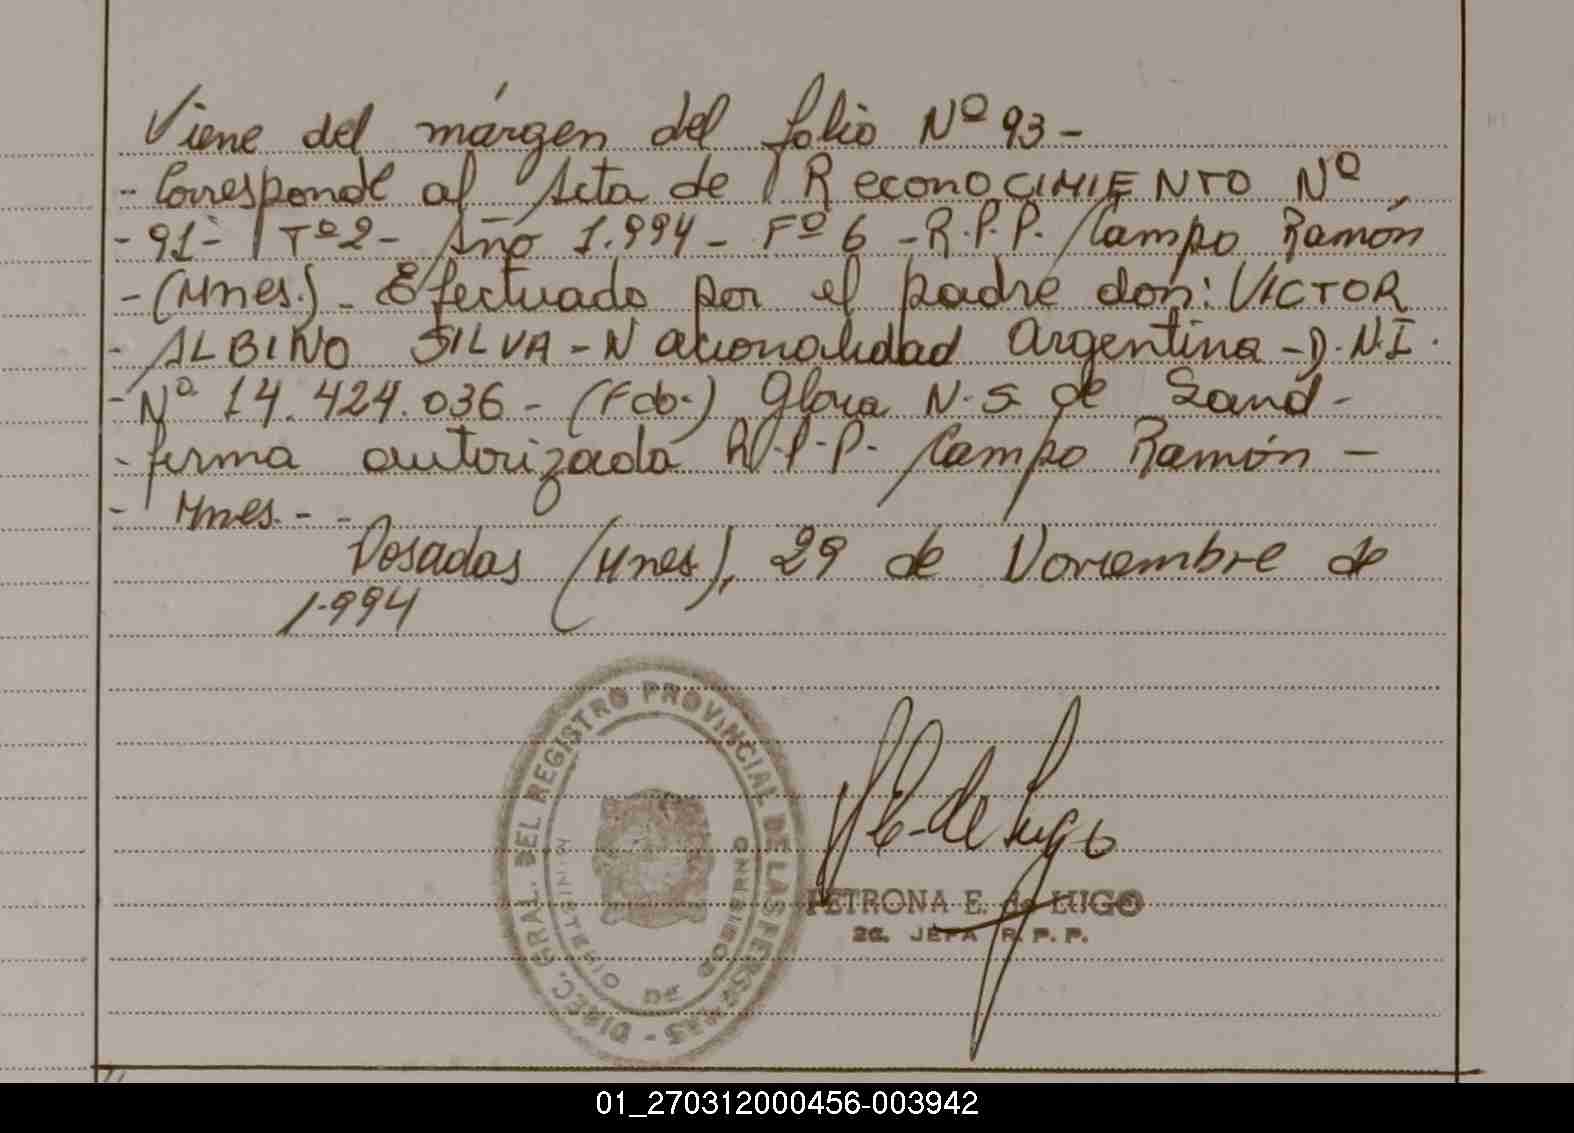 Viene del márgen del folio Nº 93 -
- Corresponde al Acta de RECONOCIMIENTO Nº
- 91- Tº 2- Año 1.994 - Fº 6 - R.P.P. Campo Ramón
- (Mnes.) - Efectuado por el padre don: VICTOR
- ALBINO SILVA - Nacionalidad Argentina - D.N.I.
- Nº 14.424.036 - (Fdo.) Gloria N. S. de Sand -
- firma autorizada R.P.P. Campo Ramón -
- Mnes. - -
Posadas (Mnes.), 29 de Noviembre de
1.994
DIREC. GRAL. DEL REGISTRO PROVINCIAL DE LAS PERSONAS -
MINISTERIO DE GOBIERNO
P. E. de Lugo
PETRONA E. de LUGO
2a. JEFA R. P. P.
01_270312000456-003942